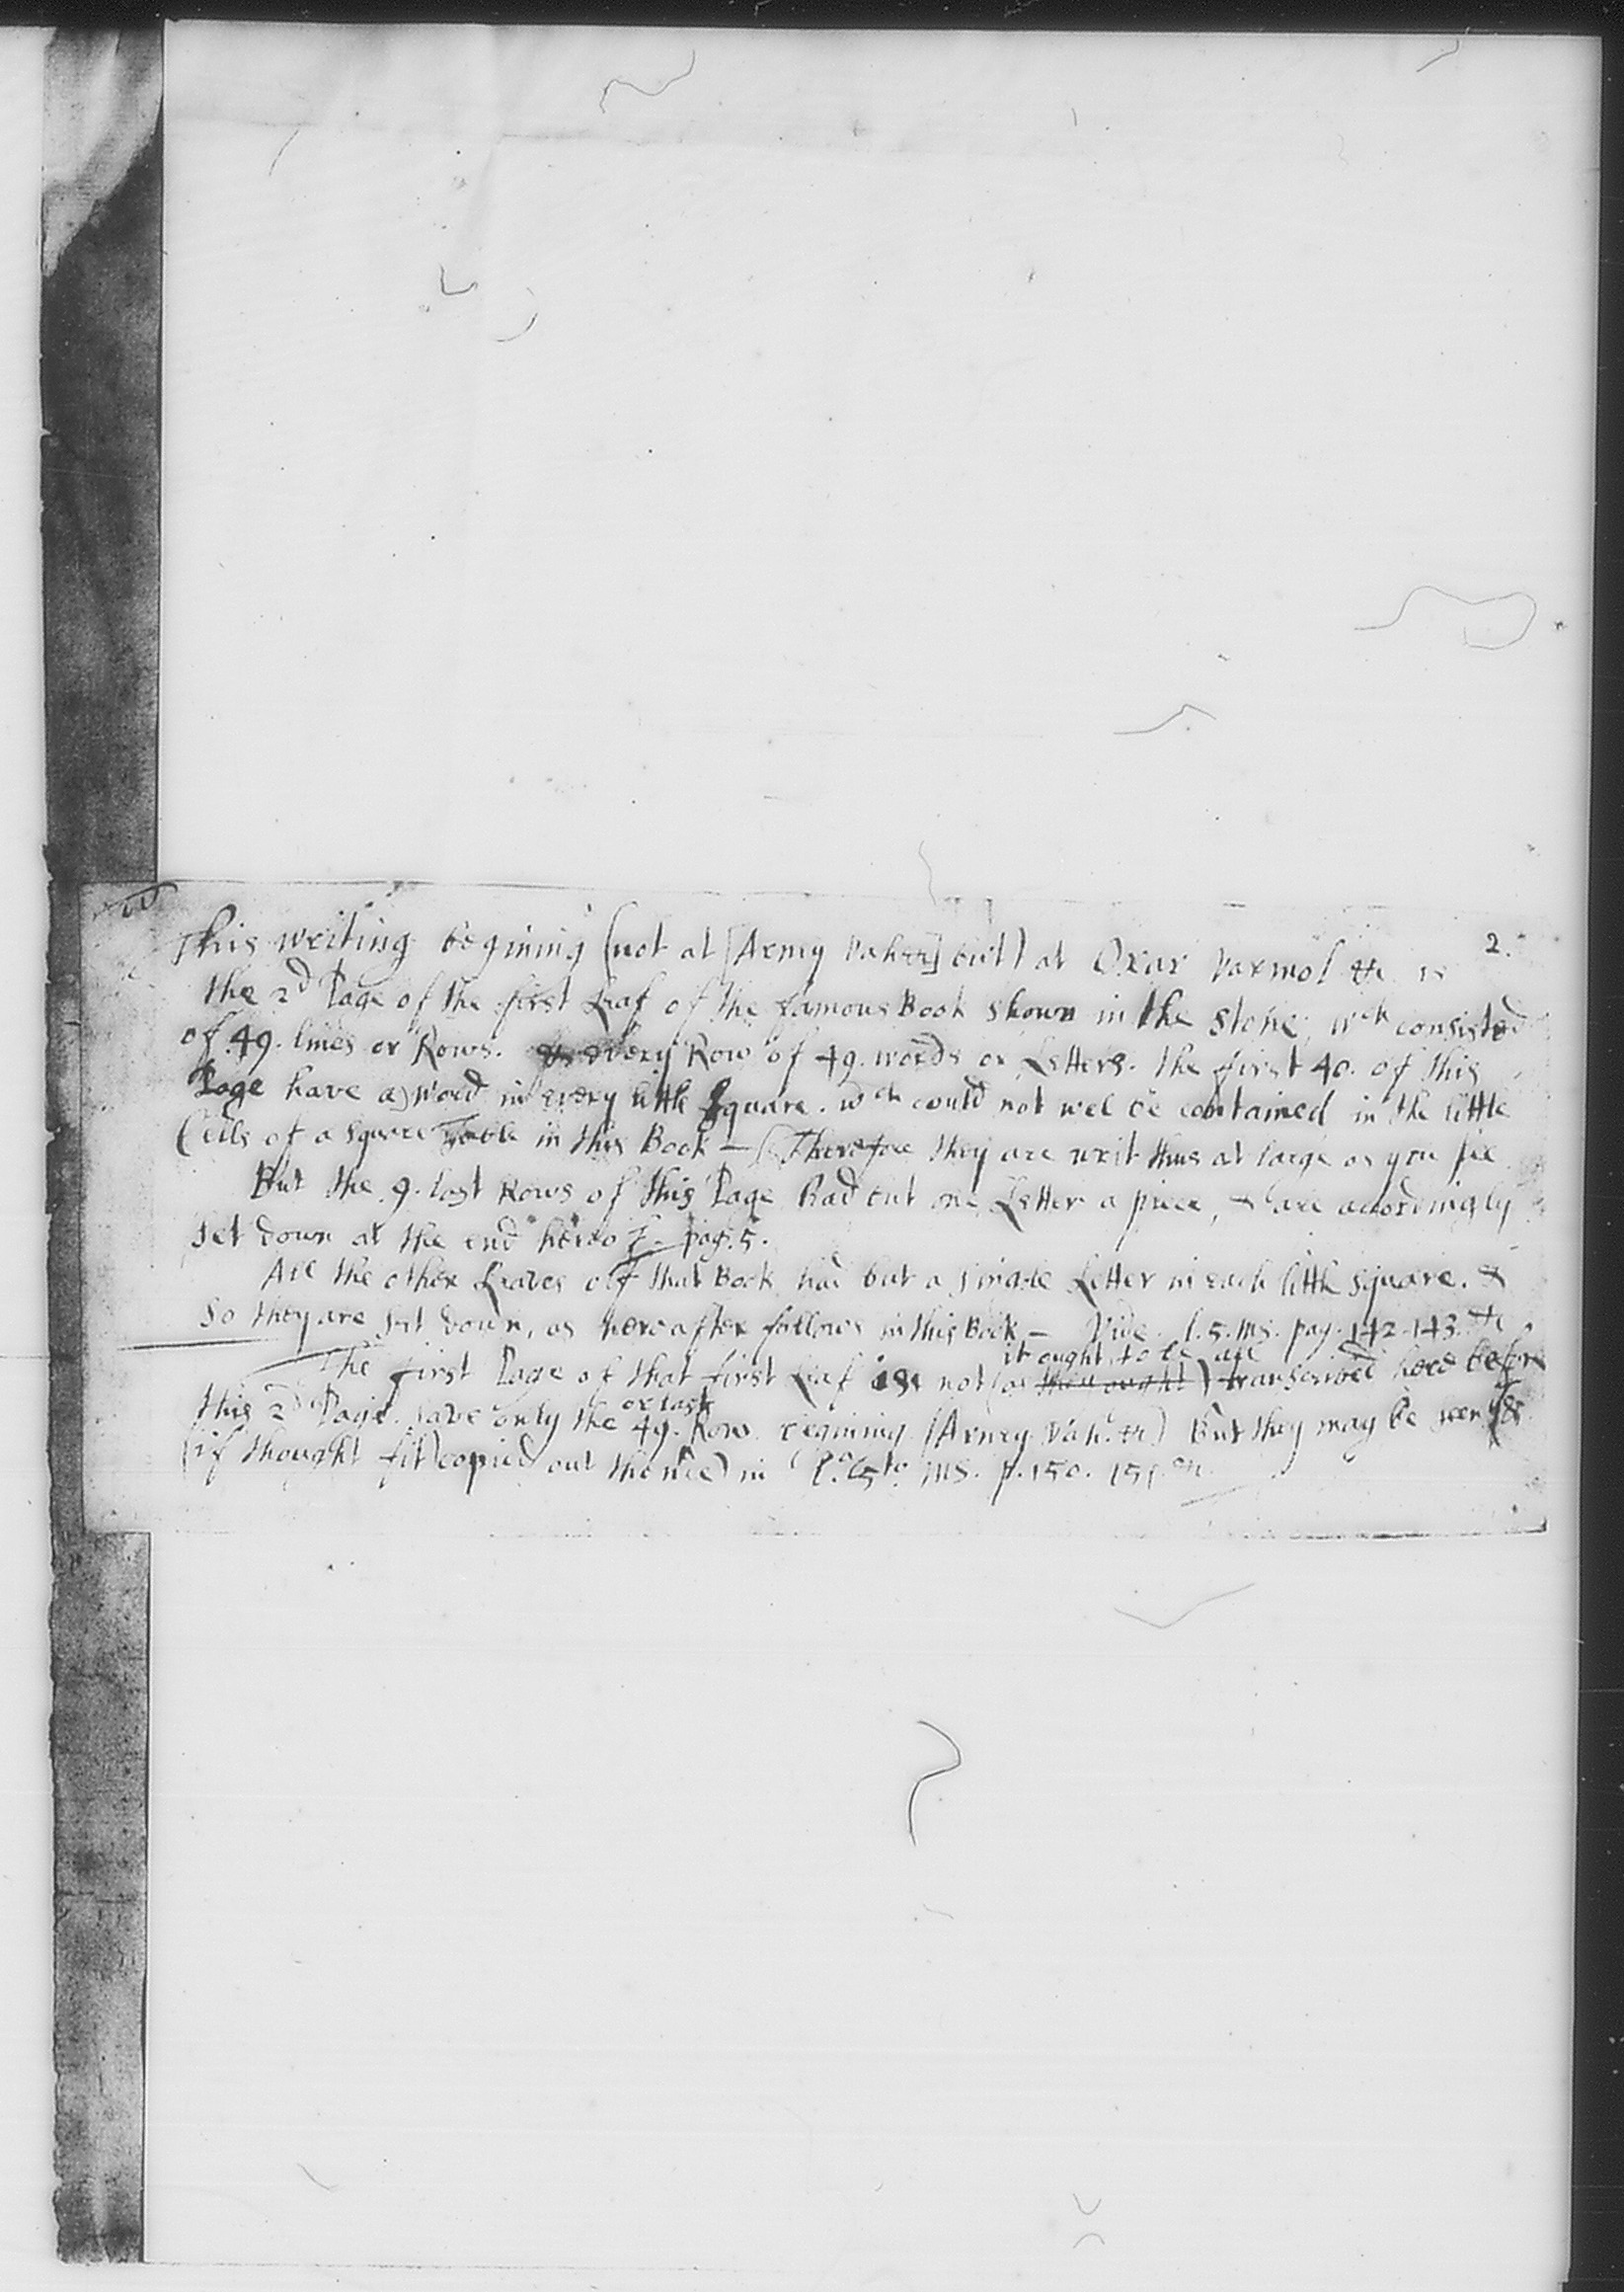 2.
This writing begining (not at [Arney Vah &c] but) at Oxar varmol &c is
the 2d Page of the first Leaf of the famous Book shown in the Stone, wch consisted
of 49. lines or Rows. every Row of 49. words or Letters. the first 40. of this
Page have a word in every little Square. wch could not wel be contained in the little
Cells of a Square Table in this Book — (Therefore they are writ thus at large as you see
But the 9. last Rows of this Page had but one Letter a piece, & are accordingly
set down at the end hereof. pag. 5.
All the other Leaves of that Book had but a single Letter in each little square. &
so they are set down, as hereafter follows in this Book — Vide. l. 5. ms. pag. 142. 143. &c
it ought to be all
The first Page of that first Leaf is not (as they ought) transcribed here before
or last
this 2d Page. save only the 49. Row begining (Arney Vah. &c) But they may be seen (&
(if thought fit) copied out thence) in l.o 5to ms. p. 150. 151. &c